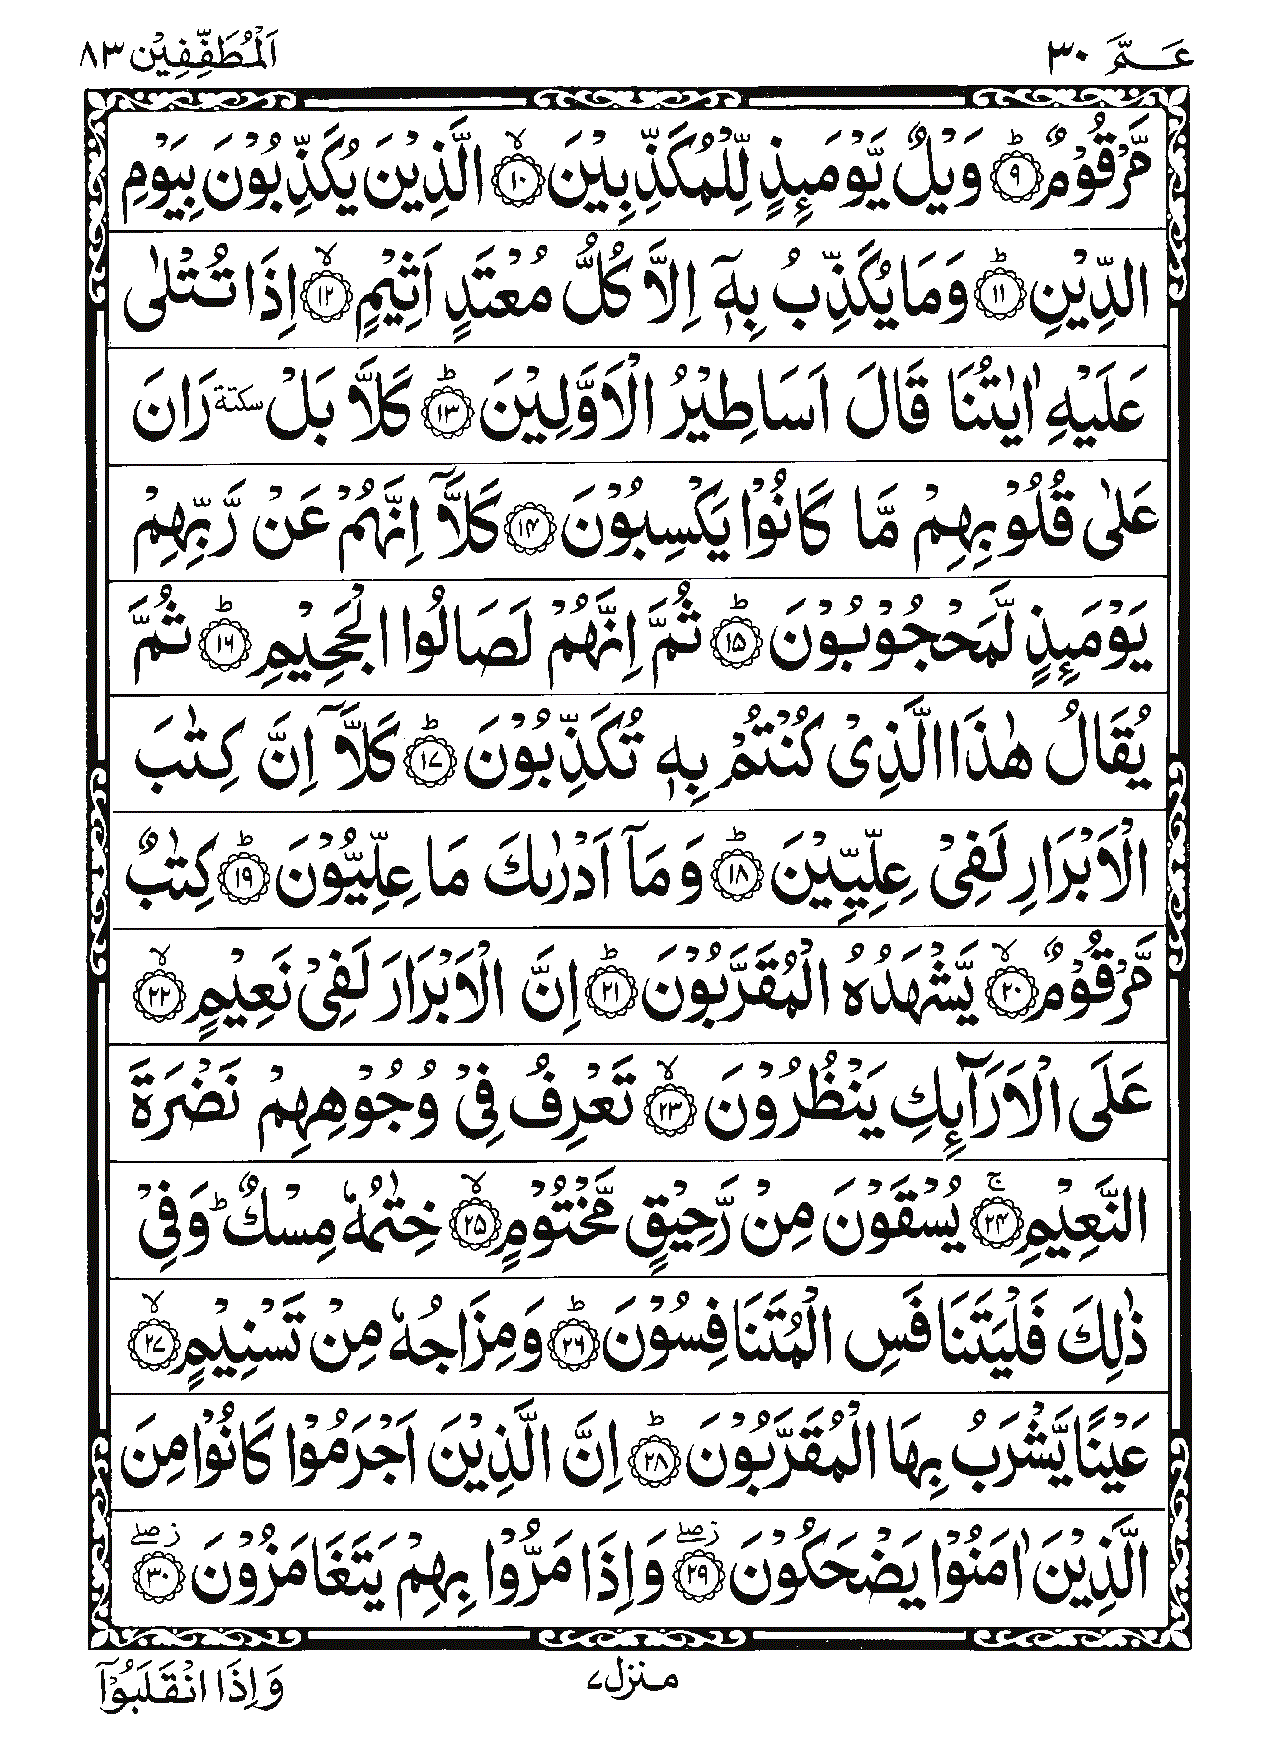 عَـمَّ ٣٠
اَلْمُطَفِّفِيْن ٨٣
مَّرْقُوْمٌ ؕ‏ ﴿۹﴾ وَيْلٌ يَّوْمَٮِٕذٍ لِّلْمُكَذِّبِيْنَ ۙ‏ ﴿۱۰﴾ الَّذِيْنَ يُكَذِّبُوْنَ بِيَوْمِ
الدِّيْنِ ؕ‏ ﴿۱۱﴾ وَمَا يُكَذِّبُ بِهٖۤ اِلَّا كُلُّ مُعْتَدٍ اَثِيْمٍ ۙ‏ ﴿۱۲﴾ اِذَا تُتْلٰى
عَلَيْهِ اٰيٰتُنَا قَالَ اَسَاطِيْرُ الْاَوَّلِيْنَ ؕ‏ ﴿۱۳﴾ كَلَّا بَلْ سكتة رَانَ
عَلٰى قُلُوْبِهِمْ مَّا كَانُوْا يَكْسِبُوْنَ‏ ﴿۱۴﴾ كَلَّاۤ اِنَّهُمْ عَنْ رَّبِّهِمْ
يَوْمَٮِٕذٍ لَّمَحْجُوْبُوْنَ ؕ‏ ﴿۱۵﴾ ثُمَّ اِنَّهُمْ لَصَالُوا الْجَحِيْمِ ؕ‏ ﴿۱۶﴾ ثُمَّ
يُقَالُ هٰذَا الَّذِىْ كُنْتُمْ بِهٖ تُكَذِّبُوْنَ ؕ‏ ﴿۱۷﴾ كَلَّاۤ اِنَّ كِتٰبَ
الْاَبْرَارِ لَفِىْ عِلِّيِّيْنَ ؕ‏ ﴿۱۸﴾ وَمَاۤ اَدْرٰٮكَ مَا عِلِّيُّوْنَ ؕ‏ ﴿۱۹﴾ كِتٰبٌ
مَّرْقُوْمٌ ۙ‏ ﴿۲۰﴾ يَّشْهَدُهُ الْمُقَرَّبُوْنَ ؕ‏ ﴿۲۱﴾ اِنَّ الْاَبْرَارَ لَفِىْ نَعِيْمٍ ۙ‏ ﴿۲۲﴾
عَلَى الْاَرَآٮِٕكِ يَنْظُرُوْنَ ۙ‏ ﴿۲۳﴾ تَعْرِفُ فِىْ وُجُوْهِهِمْ نَضْرَةَ
النَّعِيْمِ ۚ‏ ﴿۲۴﴾ يُسْقَوْنَ مِنْ رَّحِيْقٍ مَّخْتُوْمٍ ۙ‏ ﴿۲۵﴾ خِتٰمُهٗ مِسْكٌ ؕ وَفِىْ
ذٰلِكَ فَلْيَتَنَافَسِ الْمُتَنَافِسُوْنَ ؕ‏ ﴿۲۶﴾ وَمِزَاجُهٗ مِنْ تَسْنِيْمٍ ۙ‏ ﴿۲۷﴾
عَيْنًا يَّشْرَبُ بِهَا الْمُقَرَّبُوْنَ ؕ‏ ﴿۲۸﴾ اِنَّ الَّذِيْنَ اَجْرَمُوْا كَانُوْا مِنَ
الَّذِيْنَ اٰمَنُوْا يَضْحَكُوْنَ ز صلے‏ ﴿۲۹﴾ وَاِذَا مَرُّوْا بِهِمْ يَتَغَامَزُوْنَ ز صلے‏ ﴿۳۰﴾
منزل ٧
وَاِذَا انْقَلَبُوْۤا